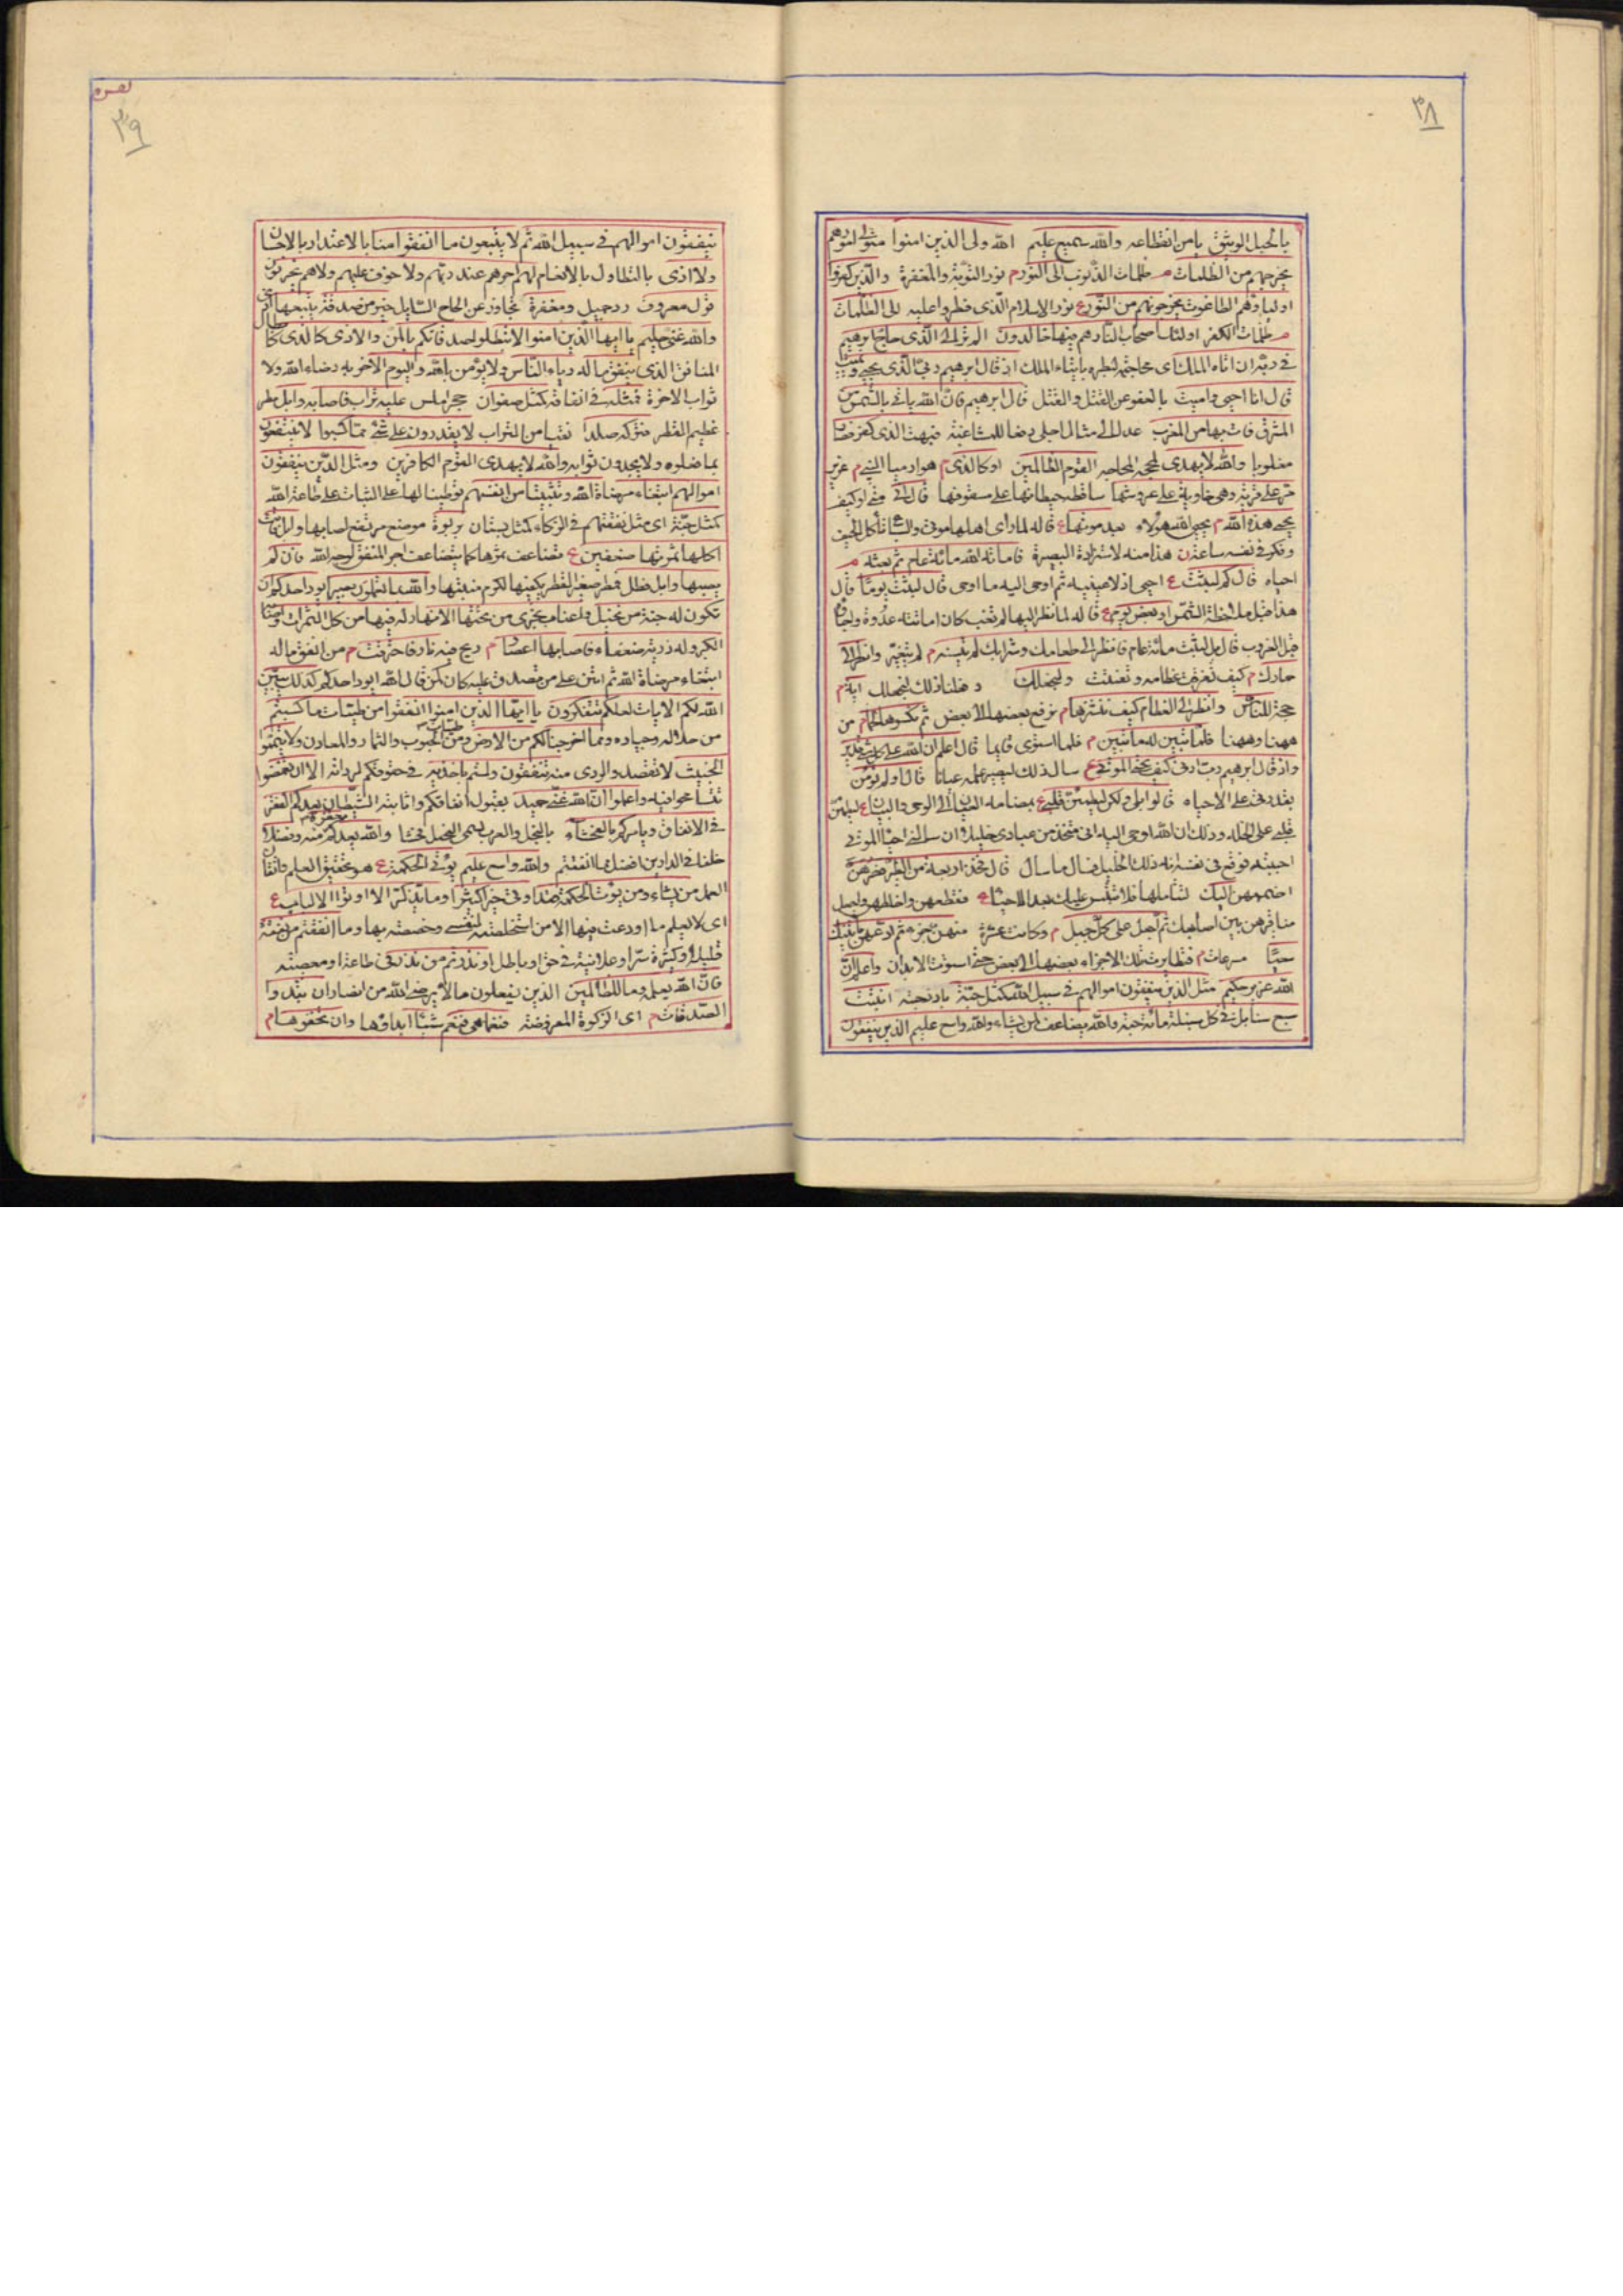 ٣٨
بالحبل الوثيق يامن انقطاعه والله سميع عليم الله ولى الذين امنوا متولى امورهم
يخرجهم من الظلمات م ظلمات الذنوب الى النور م نور التوبة والمغفرة والذين كفروا
اولياؤهم الطاغوت يخرجونهم من النور ع نور الاسلام الذى فطروا عليه الى الظلمات
م ظلمات الكفر اولئك اصحاب النار هم فيها خالدون الم تر الى الذى حاج ابرهيم
فى ربه ان اتاه الملك اى محاجته لبطره بايتاء الملك اذ قال ابرهيم ربى الذى يحيى ويميت
قال انا احيى واميت بالعفو عن القتل والقتل قال ابرهيم فان الله ياتى بالشمس من
المشرق فات بها من المغرب عدل الى مثال اجلى دفعا للمشاغبة فبهت الذى كفر فصار
مغلوبا والله لا يهدى لمحجة المحاجة القوم الظالمين او كالذى م هو ارميا النبى م عزير
مر على قرية وهى خاوية على عروشها ساقطة حيطانها على سقوفها قال انى متى او كيف
يحيى هذه الله م يحيى الله هؤلاء بعد موتها ع قاله لما راى اهلها موتى والسباع تاكل الجيف
وفكر فى نفسه ساعة ن هذا منه لاستزادة البصيرة فاماته الله مائة عام ثم بعثه م
احياه قال كم لبثت ع احيى اذ لا عينيه ثم اوحى اليه ما اوحى قال لبثت يوما قال
هذا قبل ملاحظة الشمس او بعض يوم ع قاله لما نظر اليها لم تغب كان اماتته غدوة واحياؤه
قبل الغروب قال بل لبثت مائة عام فانظر الى طعامك وشرابك لم يتسنه م لم يتغير وانظر الى
حمارك م كيف تفرقت عظامه وتفتت ولنجعلك وفعلنا ذلك لنجعلك اية م
حجة للناس وانظر الى العظام كيف ننشزها م نرفع بعضها الى بعض ثم نكسوها لحما م من
ههنا وههنا فلما تبين له ما تبين م فلما استوى قايما قال اعلم ان الله على كل شىء قدير
واذ قال ابرهيم رب ارنى كيف تحيى الموتى ع سال ذلك ليصير علمه عيانا قال اولم تؤمن
بقدرتى على الاحياء قال بلى ولكن ليطمئن قلبى ع بمضامة العيان الى الوحى والبيان ع ليطمئن
قلبى على الخلة وذلك ان الله اوحى اليه انى متخذ من عبادى خليلا ان سالنى احياء الموتى
اجبته فوقع فى نفسه انه ذلك الخليل فسال ما سال قال فخذ اربعة من الطير فصرهن
اضممهن اليك لتتاملها فلا تلتبس عليك بعد الاحياء ع فقطعهن واخلطهن واجعل
مناقيرهن بين اصابعك ثم اجعل على كل جبل م وكانت عشرة منهن جزءا ثم ادعهن ياتينك
سعيا مسرعات م فتطايرت تلك الاجزاء بعضها الى بعض حتى استوت الابدان واعلم ان
الله عزيز حكيم مثل الذين ينفقون اموالهم فى سبيل الله كمثل حبة باذر حبة انبتت
سبع سنابل فى كل سنبلة مائة حبة والله يضاعف لمن يشاء والله واسع عليم الذين ينفقون
٣٩
ينفقون اموالهم فى سبيل الله ثم لا يتبعون ما انفقوا منا بالاعتداد بالاحسان
ولا اذى بالتطاول بالانعام لهم اجرهم عند ربهم ولا خوف عليهم ولا هم يحزنون
قول معروف رد جميل ومغفرة تجاوز عن الحاح السايل خير من صدقة يتبعها اذى
والله غنى حليم يا ايها الذين امنوا لا تبطلوا صدقاتكم بالمن والاذى كالذى كابطال
المنافق الذى ينفق ماله رياء الناس ولا يؤمن بالله واليوم الاخر به رضاء الله ولا
ثواب الاخرة فمثله فى انفاقه كمثل صفوان حجر املس عليه تراب فاصابه وابل مطر
عظيم القطر فتركه صلدا نقيا من التراب لا يقدرون على شىء مما كسبوا لا ينتفعون
بما فعلوه ولا يجدون ثوابه والله لا يهدى القوم الكافرين ومثل الذين ينفقون
اموالهم ابتغاء مرضاة الله وتثبيتا من انفسهم توطينا لها على الثبات على طاعة الله
كمثل جنة اى مثل نفقتهم فى الزكاء كمثل بستان بربوة موضع مرتفع اصابها وابل فاتت
اكلها ثمرتها ضعفين ع تضاعف ثمرها كما يتضاعف اجر المنفق لوجه الله فان لم
يصبها وابل فطل فمطر صغير القطر يكفيها لكرم منبتها والله بما تعملون بصير ايود احدكم ان
تكون له جنة من نخيل واعناب تجرى من تحتها الانهار له فيها من كل الثمرات واصابه
الكبر وله ذرية ضعفاء فاصابها اعصار م ريح فيه نار فاحترقت م من انفق ماله
ابتغاء مرضاة الله ثم امتن على من تصدق عليه كان كمن قال الله ايود احدكم كذلك يبين
الله لكم الايات لعلكم تتفكرون يا ايها الذين امنوا انفقوا من طيبات ما كسبتم
من حلاله وجياده ومما اخرجنا لكم من الارض ومن طيبات الحبوب والثمار والمعادن ولا تيمموا
الخبيث لا تقصدوا الردى منه تنفقون ولستم باخذيه فى حقوقكم لرداءته الا ان تغمضوا
تتسامحوا فيه واعلموا ان الله غنى حميد بقبول انفاقكم واثابته الشيطان يعدكم الفقر
فى الانفاق ويامركم بالفحشاء بالبخل والعرب يسمى البخيل فاحشا والله يعدكم مغفرة منه وفضلا
خلفا فى الدارين افضل مما انفقتم والله واسع عليم يؤتى الحكمة ع هو تحقيق العلم واتقان
العمل من يشاء ومن يؤت الحكمة فقد اوتى خيرا كثيرا وما يذكر الا اولوا الالباب ع
اى لا يعلم ما اودعت فيها الا من استخلصته لنفسى وخصصته بها وما انفقتم من نفقة
قليلة او كثيرة سرا وعلانية فى حق او باطل او نذرتم من نذر فى طاعة او معصية
فان الله يعلمه وما للظالمين الذين يفعلون ما لا يرضى الله من انصار ان تبدوا
الصدقات م اى الزكوة المفروضة فنعما هى فنعم شيئا ابداؤها وان تخفوها م